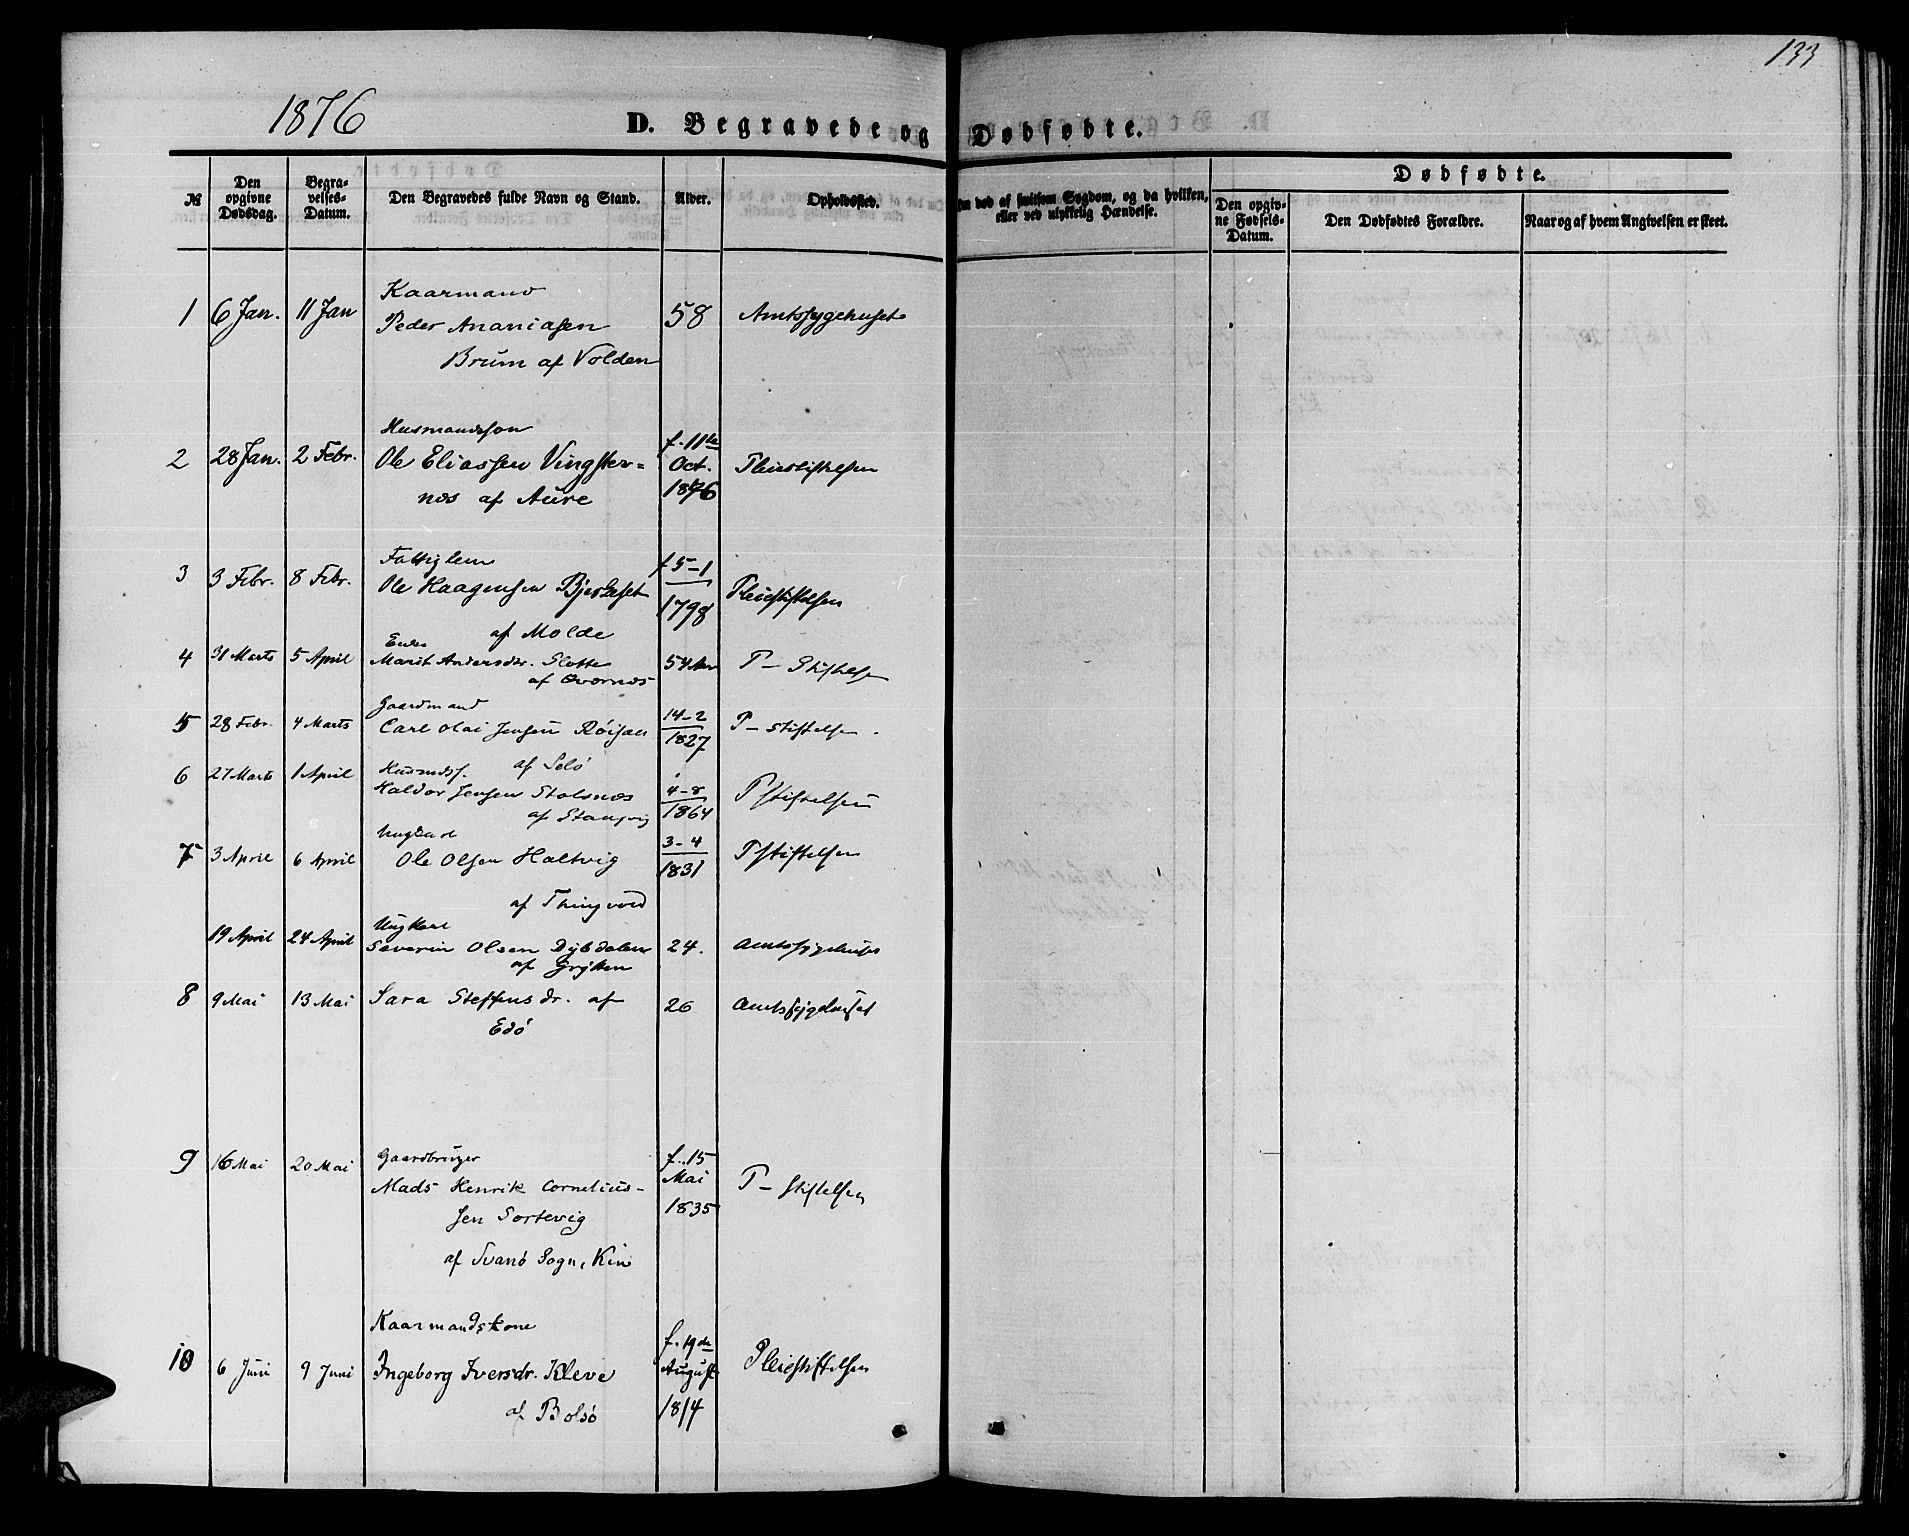 133
1876
D. Begravede og Dødfødte.
№
Den opgivne Dødsdag.
Begravelses-Datum.
Den Begravedes fulde Navn og Stand.
Alder.
Opholdssted.
Om død af smitsom Sygdom, og da hvilken, eller ved ulykkelig Hændelse.
Dødfødte.
Den opgivne Fødsels-Datum.
Den Dødfødtes Forældre.
Naar og af hvem Angivelsen er skeet.
Kaarmand
1 6 Jan. 11 Jan Peder Ananiasen 58 Amtssygehuset
Brum af Volden
Husmandssøn f. 11te
2 28 Jan. 2 Febr. Ole Eliassen Vingster= Oct. Pleiestiftelsen
nes af Aure 1876
Fattiglem f 5-1
3 3 Febr. 8 Febr. Ole Haagensen Bjerkeset 1798 Pleiestiftelsen
af Molde
Enke
4 31 Marts 5 April Marit Andersdr. Slotte 54 P- Stiftelsen
af Qvernes
Gaardmand 14-2
5 28 Febr. 4 Marts Carl Olai Jensen Røisan 1827 P- stiftelsen.
af Selø
6 27 Marts 1 April Husmdsf. 4-8
Haldor Jensen Stolsnes 1864 P stiftelsen
af Stangvig
Ungkarl 3-4
7 3 April 6 April Ole Olsen Haltvig 1831 P stiftelsen
af Thingvold
Ungkarl
19 April 24 April Severin Olsen Dybdalen 24. Amtssygehuset
af Grytten
8 9 Mai 13 Mai Sara Steffensdr. af 26 Amtssygehuset
Edø
Gaardbruger f. 15
9 16 Mai 20 Mai Mads Henrik Cornelius- Mai P- Stiftelsen
sen Sortevig 1835
af Svanø Sogn, Kin
Kaarmandskone f. 19de
10 6 Juni 9 Juni Ingeborg Iversdr. Kleve August Pleiestiftelsen
af Bolsø 1814